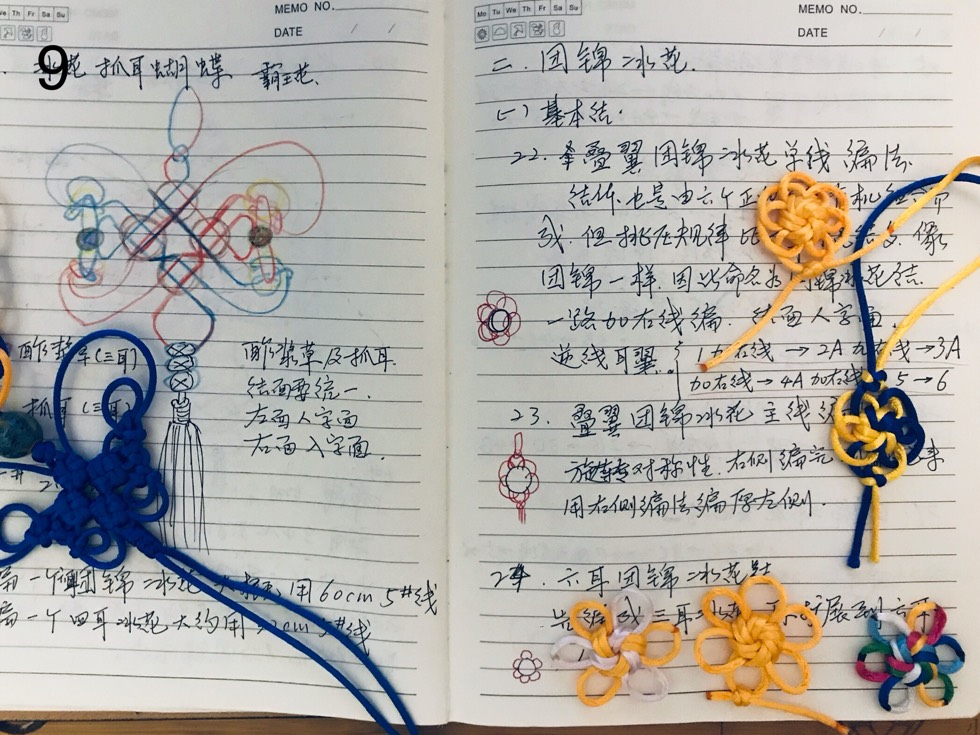 We Th Fr Sa Su
MEMO NO.
DATE / /
9
花 抓耳蝴蝶 霸王花.
酢浆草(三耳)
抓耳(三耳)
酢浆草及抓耳
结面要统一
左面人字面
右面入字面.
一个 团锦冰花 用60cm 5#线
一个四耳冰花大约用 cm 5#线
Mo Tu We Th Fr Sa Su
MEMO NO.
DATE / /
二. 团锦冰花.
(一) 基本结.
22. 叠翼团锦冰花单线编法.
结体也是由六个 机组
成. 但挑压规律 像
团锦一样. 因此命名为 锦冰花结.
一路加右线编. 结面人字面.
逆线耳翼. 1加右线 → 2A加右线 → 3A
加右线 → 4A加右线 5 → 6
23. 叠翼团锦冰花 主线
旋转对称性. 右侧编完
用右侧编法编 左侧.
24. 六耳团锦冰花结
三耳冰花 扩展到六耳